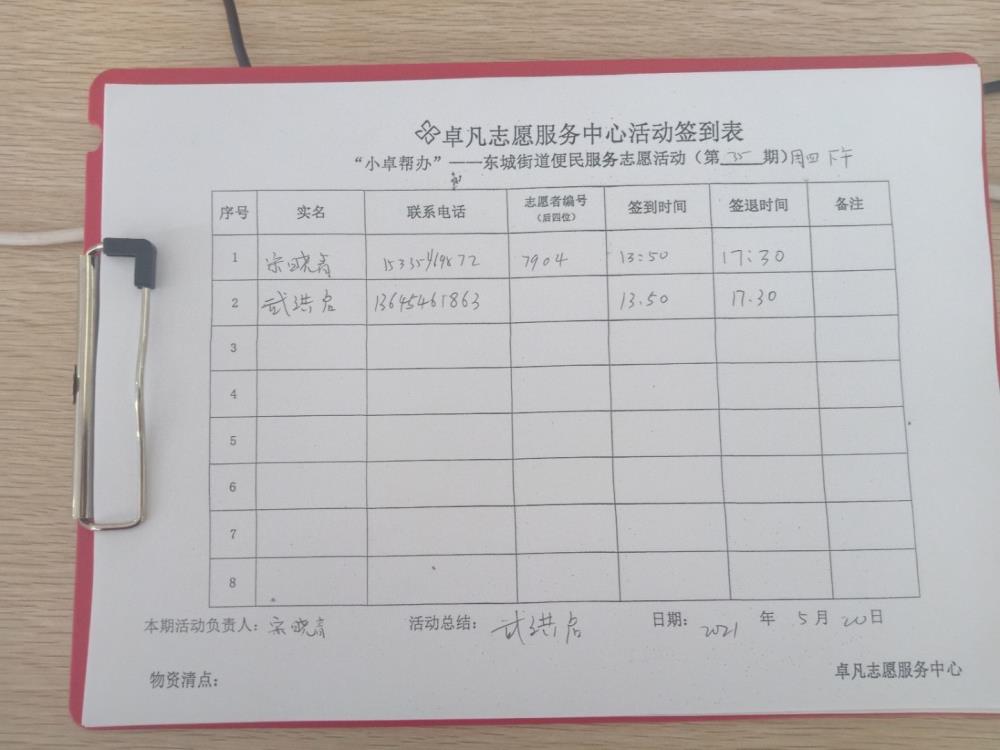 卓凡志愿服务中心活动签到表
“小卓帮办”——东城街道便民服务志愿活动（第 35 期）周四下午
序号 实名 联系电话 志愿者编号（后四位） 签到时间 签退时间 备注
1 宋晓青 7904 13:50 17:30
2 武洪启 13645461863 13.50 17.30
3
4
5
6
7
8
本期活动负责人：宋晓青 活动总结：武洪启 日期：2021 年 5 月 20 日
物资清点： 卓凡志愿服务中心